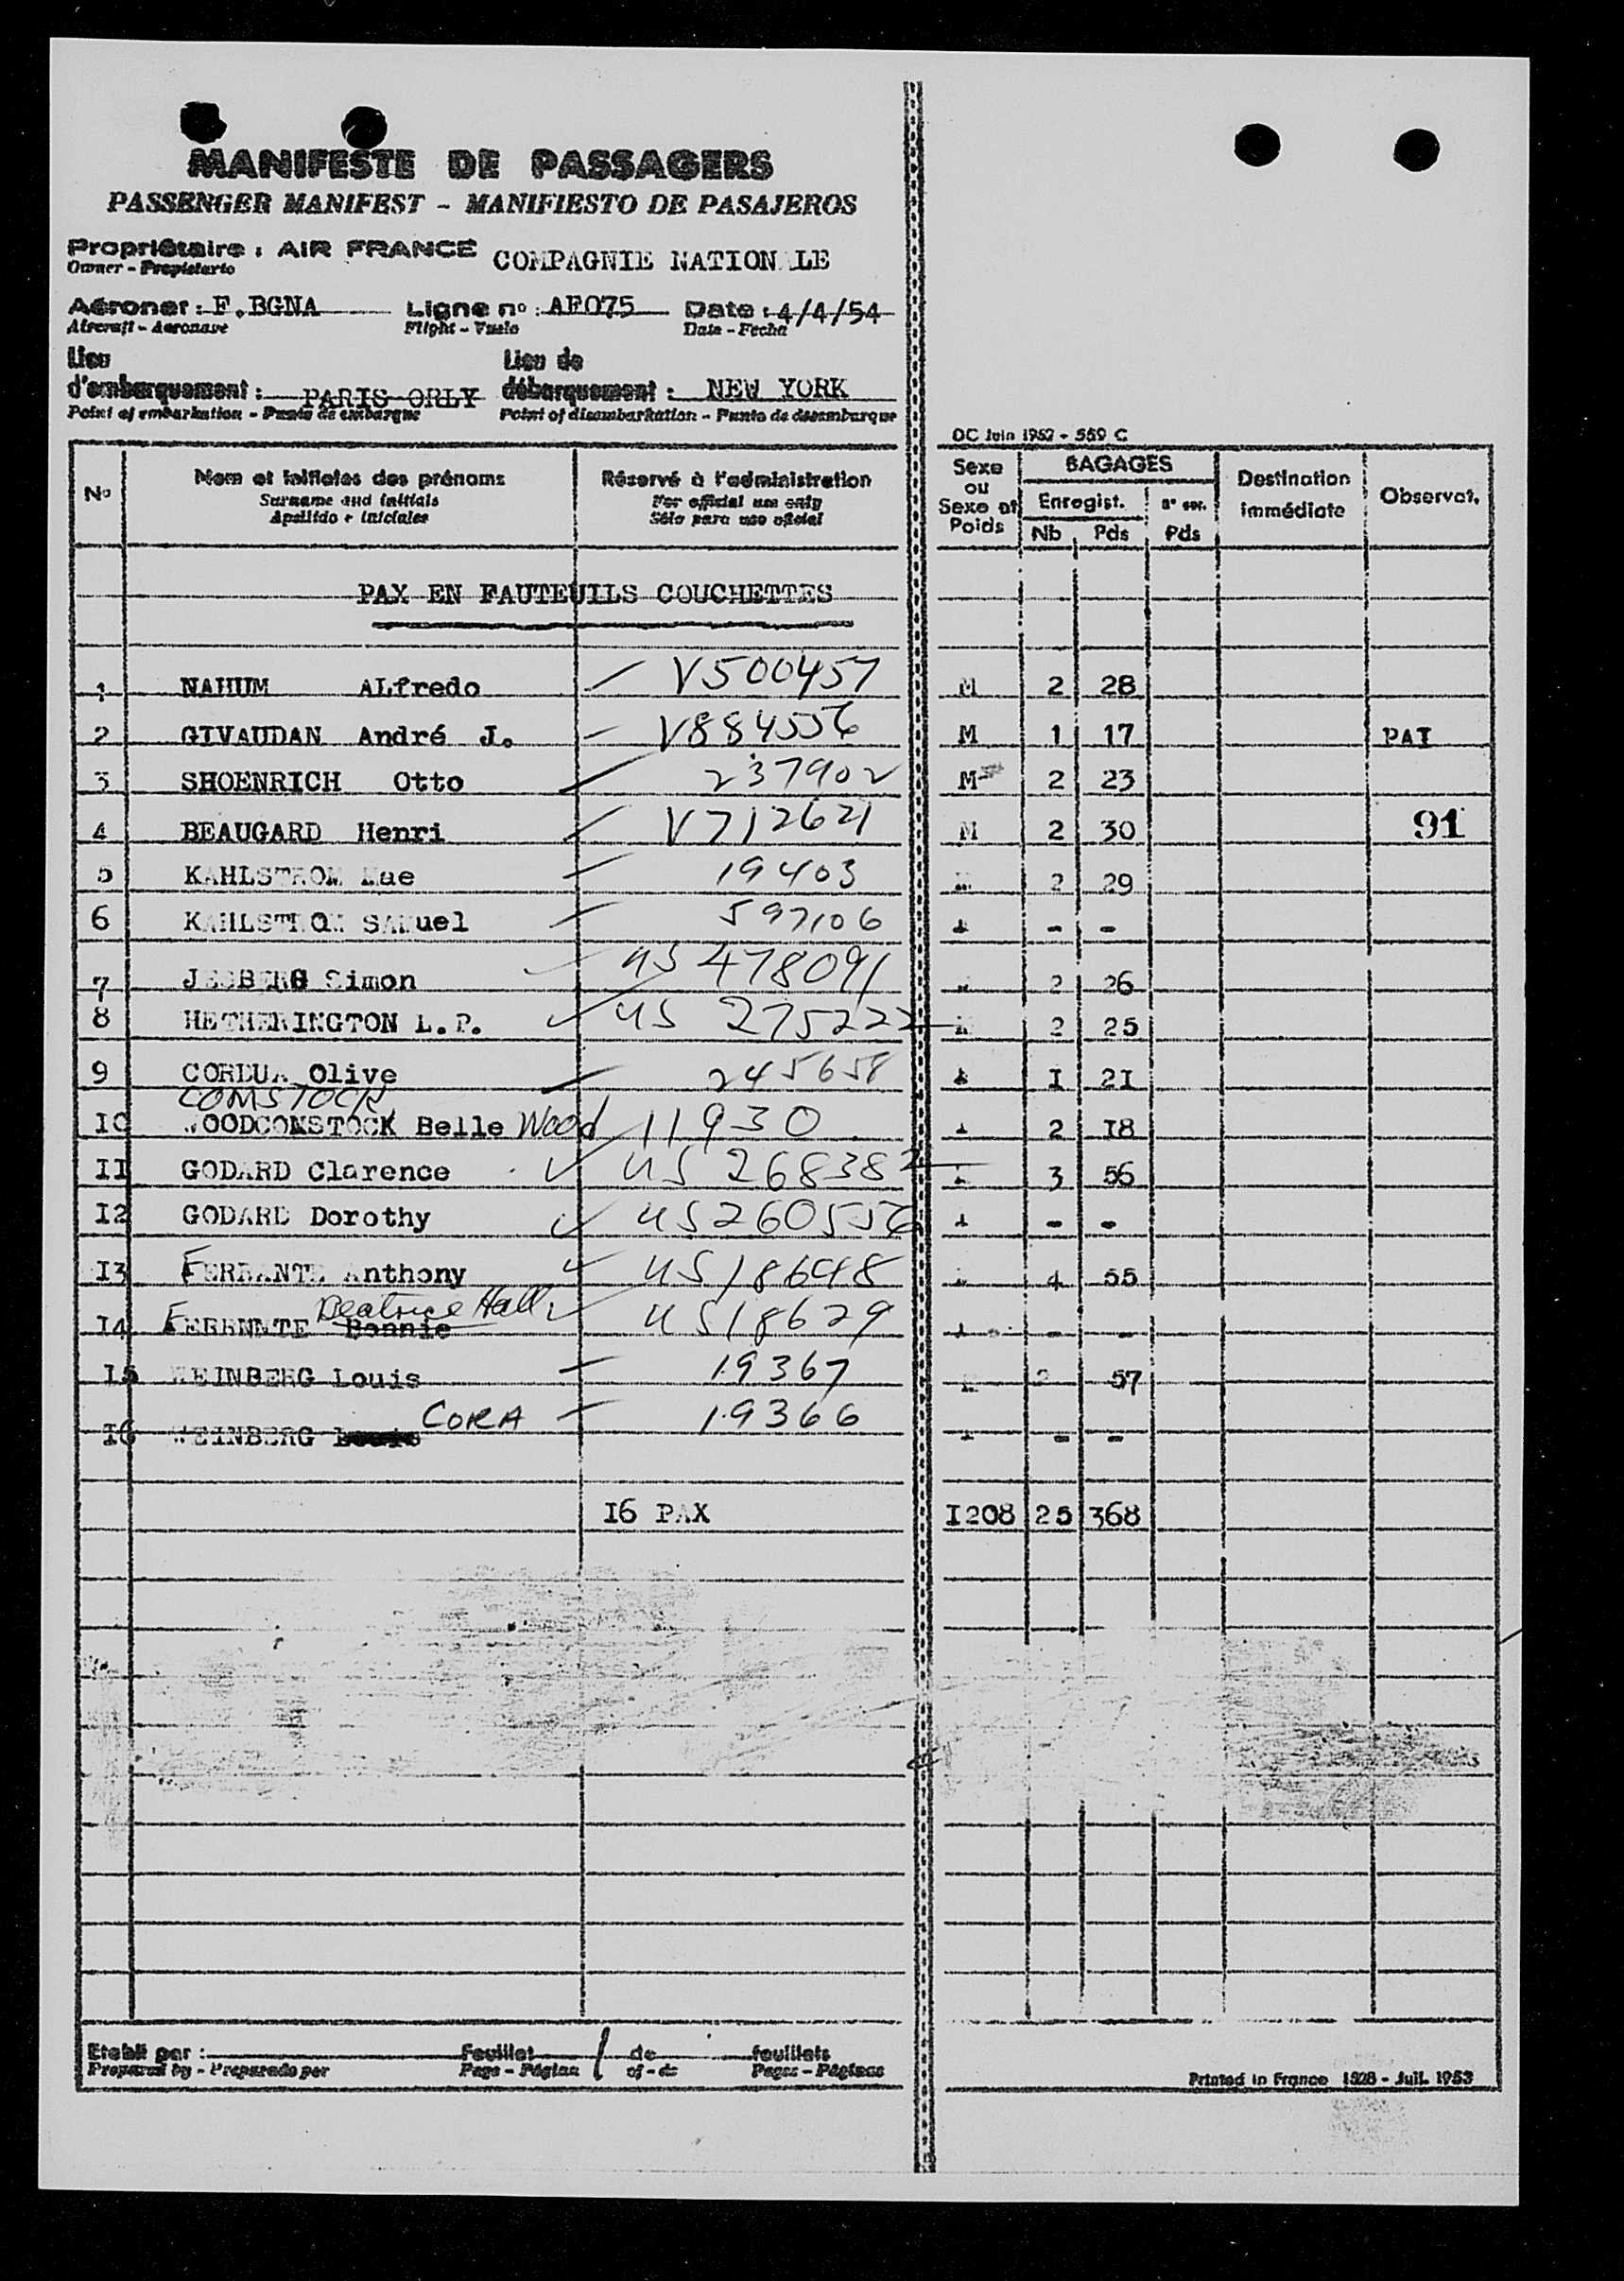 MANIFESTE DE PASSAGERS
PASSENGER MANIFEST - MANIFIESTO DE PASAJEROS
Propriétaire : AIR FRANCE COMPAGNIE NATION LE
Owner - Propietario
Aéronef : F.BGNA Ligne no : AF075 Date : 4/4/54
Aircraft - Aeronave Flight - Vuelo Date - Fecha
Lieu d'embarquement : PARIS ORLY Lieu de débarquement : NEW YORK
Point of embarkation - Punto de embarque Point of disembarkation - Punto de desembarque
OC Juin 1952 - 559 C
No Nom et initiales des prénoms Réservé à l'administration Sexe ou Sexe et Poids BAGAGES Destination immédiate Observat.
Surname and initials For official use only Enregist.
Apellido e iniciales Sólo para uso oficial Nb Pds Pds
PAX EN FAUTEUILS COUCHETTES
1 NAHUM ALfredo V500457 M 2 28
2 GIVAUDAN André J. V884556 M 1 17 PAI
3 SHOENRICH Otto 237902 M 2 23
4 BEAUGARD Henri V712621 M 2 30 91
5 KAHLSTROM Mae 19403 2 29
6 KAHLSTROM SAMuel 597106 - -
7 JESBERG Simon US 478091 2 26
8 HETHERINGTON L.P. US 275222 2 25
9 Olive 245658 I 21
COMSTOCK
10 WOODCOMSTOCK Belle Wood 11930 2 I8
II GODARD Clarence US 268382 3 56
I2 GODARD Dorothy US260556 - -
I3 FERRANTE Anthony US18648 4 55
Beatrice Hall
I4 FERRNNTE Bonnie US18629 - -
I5 WEINBERG Louis 19367 2 57
I6 WEINBERG CORA 19366 - -
I6 PAX I208 25 368
Etabli par : Feuillet 1 de feuillets
Prepared by - Preparado por Page - Página of - de Pages - Páginas
Printed in France 1328 - Juil. 1953